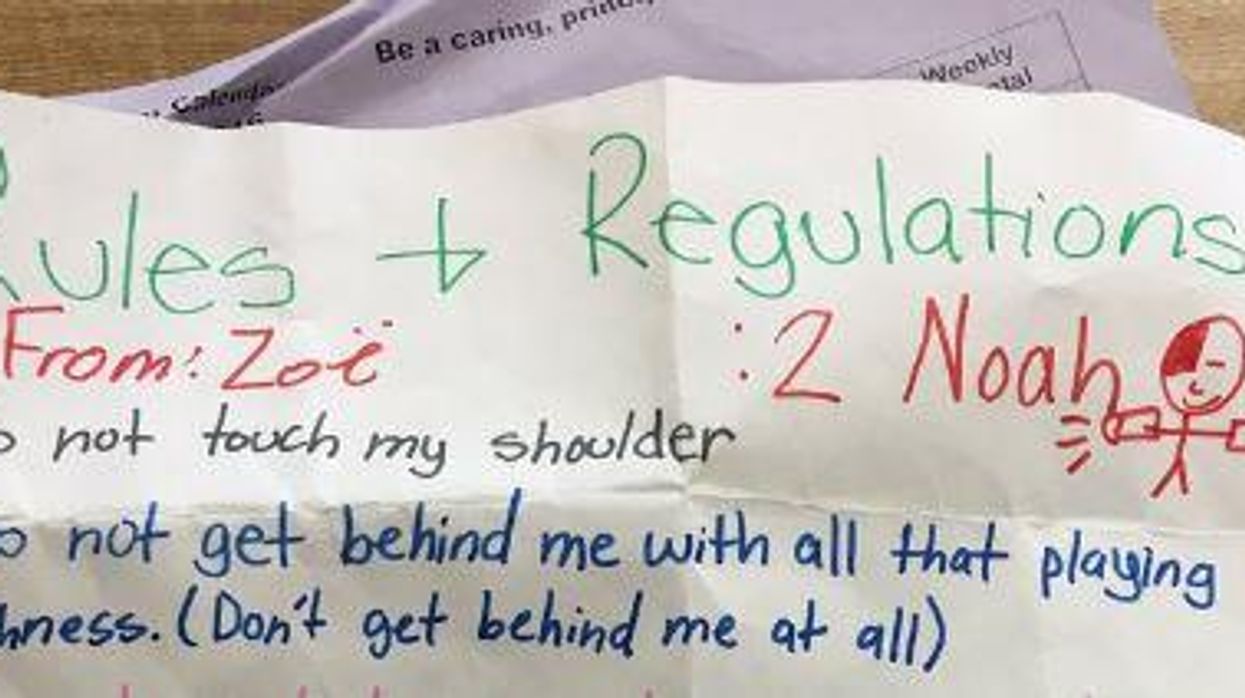 Be a caring,
Weekly
Rules + Regulations
From: Zoë :2 Noah
not touch my shoulder
not get behind me with all that playing
(Don't get behind me at all)